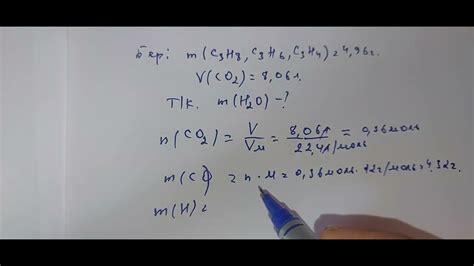 Бер: m(C₃H₈, C₃H₆, C₃H₄) = 4,96г.
V(CO₂) = 8,06л.
Т/к. m(H₂O) - ?
n(CO₂) = V/Vм = 8,06л/22,4л/моль = 0,36моль
m(C) = n · M = 0,36моль · 12г/моль = 4,32г.
m(H) =